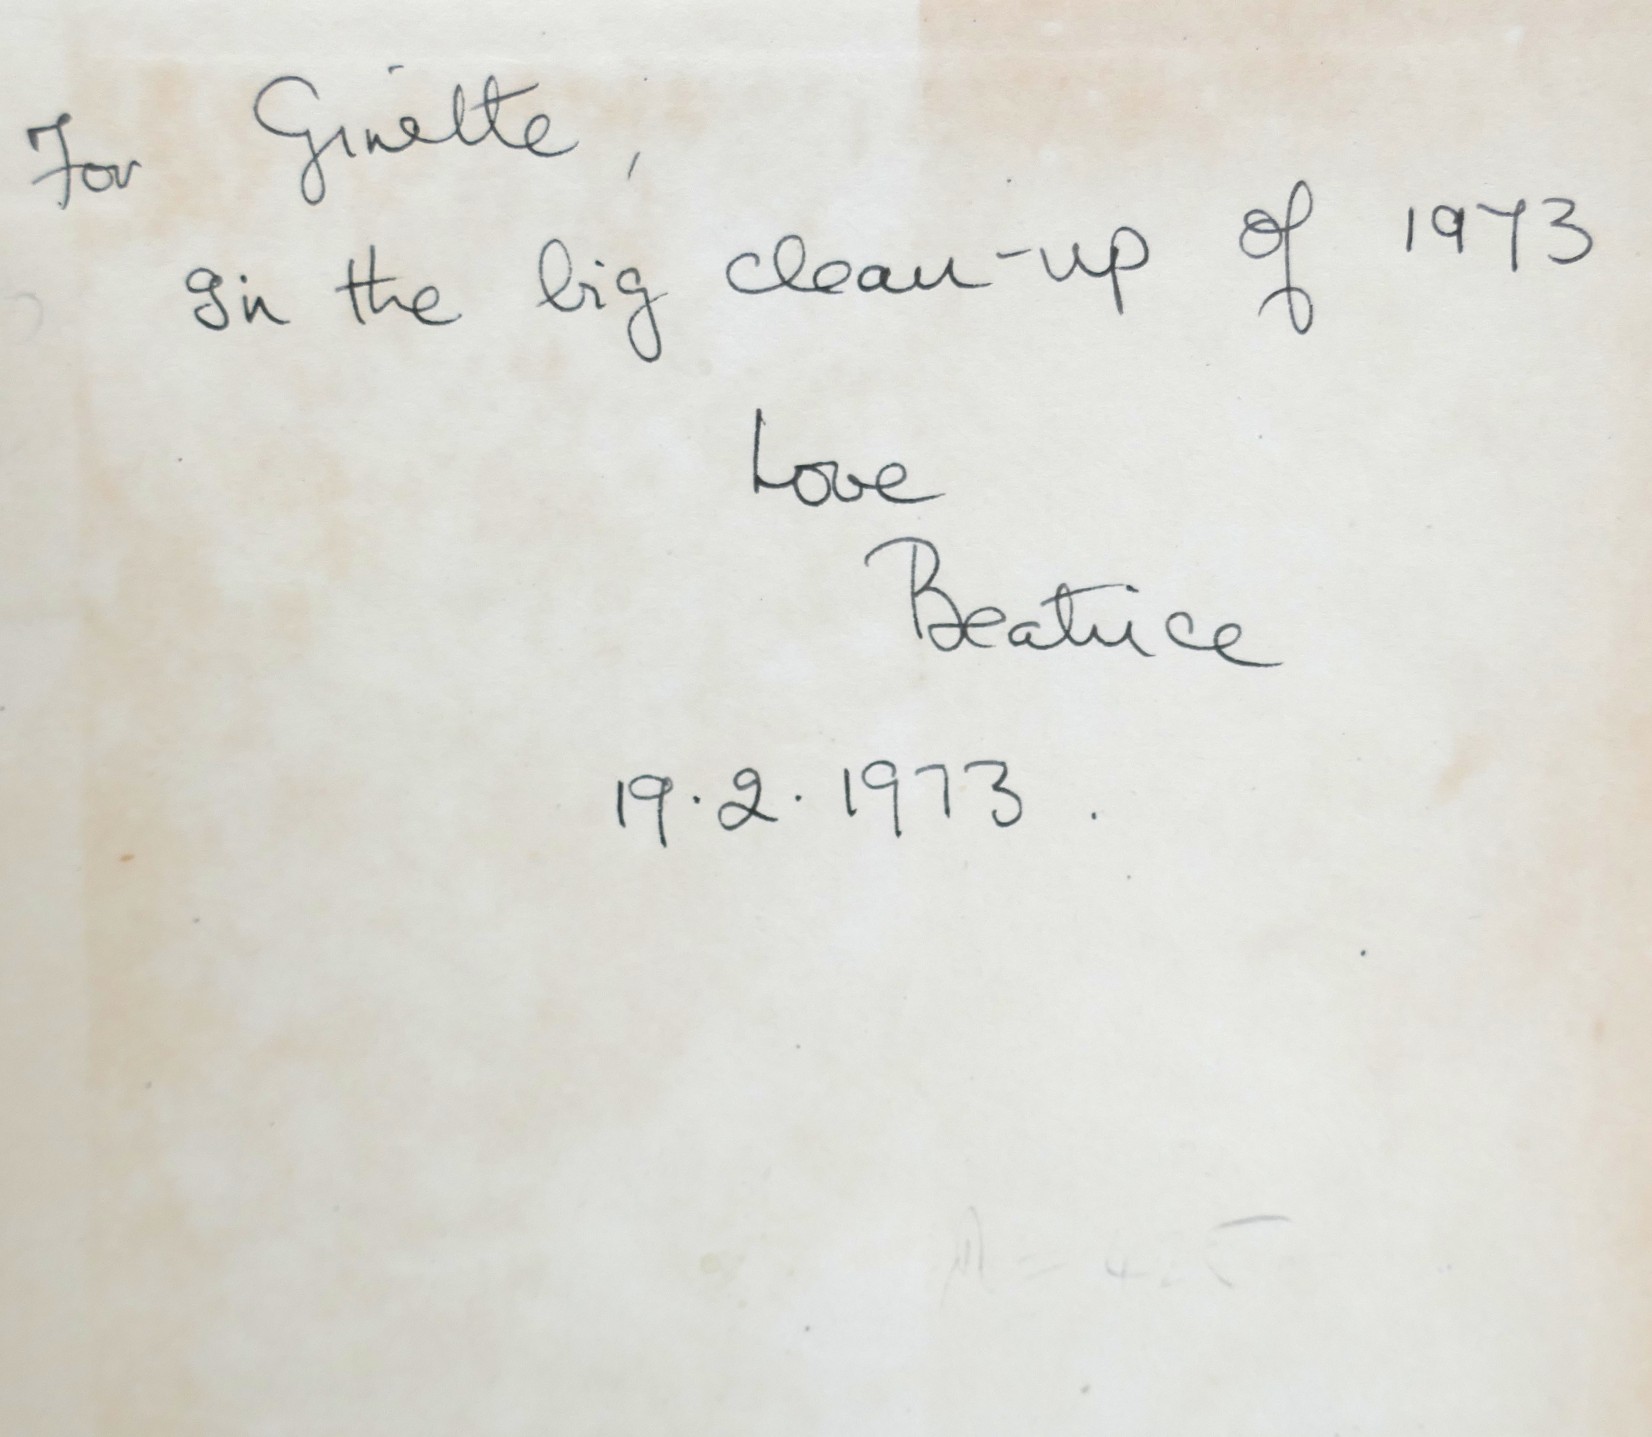 For Ginette,
In the big clean-up of 1973
Love
Beatrice
19.2.1973.